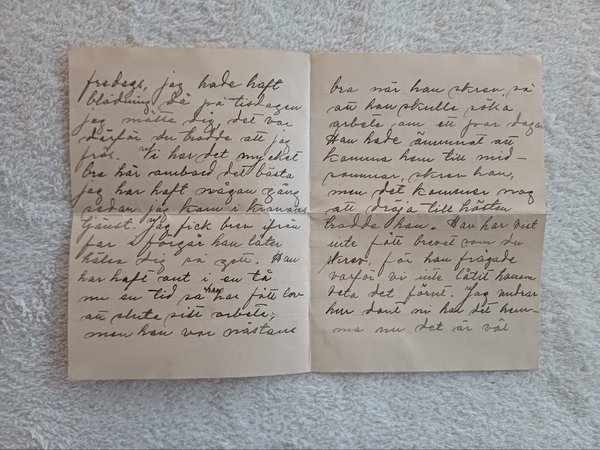 fredags, jag hade haft
blödning då på tisdagen
jag mötte dig, det var
därför du trodde att jag
frös. Vi har det mycket
bra här ombord det bästa
jag har haft någon gång
sedan jag kom i kronans
tjänst. Jag fick brev ifrån
far i förgår han låter
hälsa dig så gott. Han
har haft ont i en tå
nu en tid så han har fått lov
att sluta sitt arbete,
men han var nästan
bra när han skrev, så
att han skulle söka
arbete om ett par dagar
Han hade ämnat att
komma hem till mid-
sommar, skrev han,
men det kommer nog
att dröja till hösten
trodde han. Han har visst
inte fått brevet som du
skrev, för han frågade
varför vi inte låtit honom
veta det förut. Jag undrar
hur dant ni har det hem-
ma nu det är väl